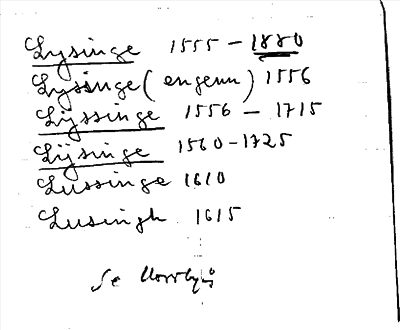 Lysinge 1555 - 1880
Lyssinge (en genn) 1556
Lÿssinge 1556 - 1715
Lÿsinge 1560 - 1725
Lussinge 1610
Lusingh 1615
Se